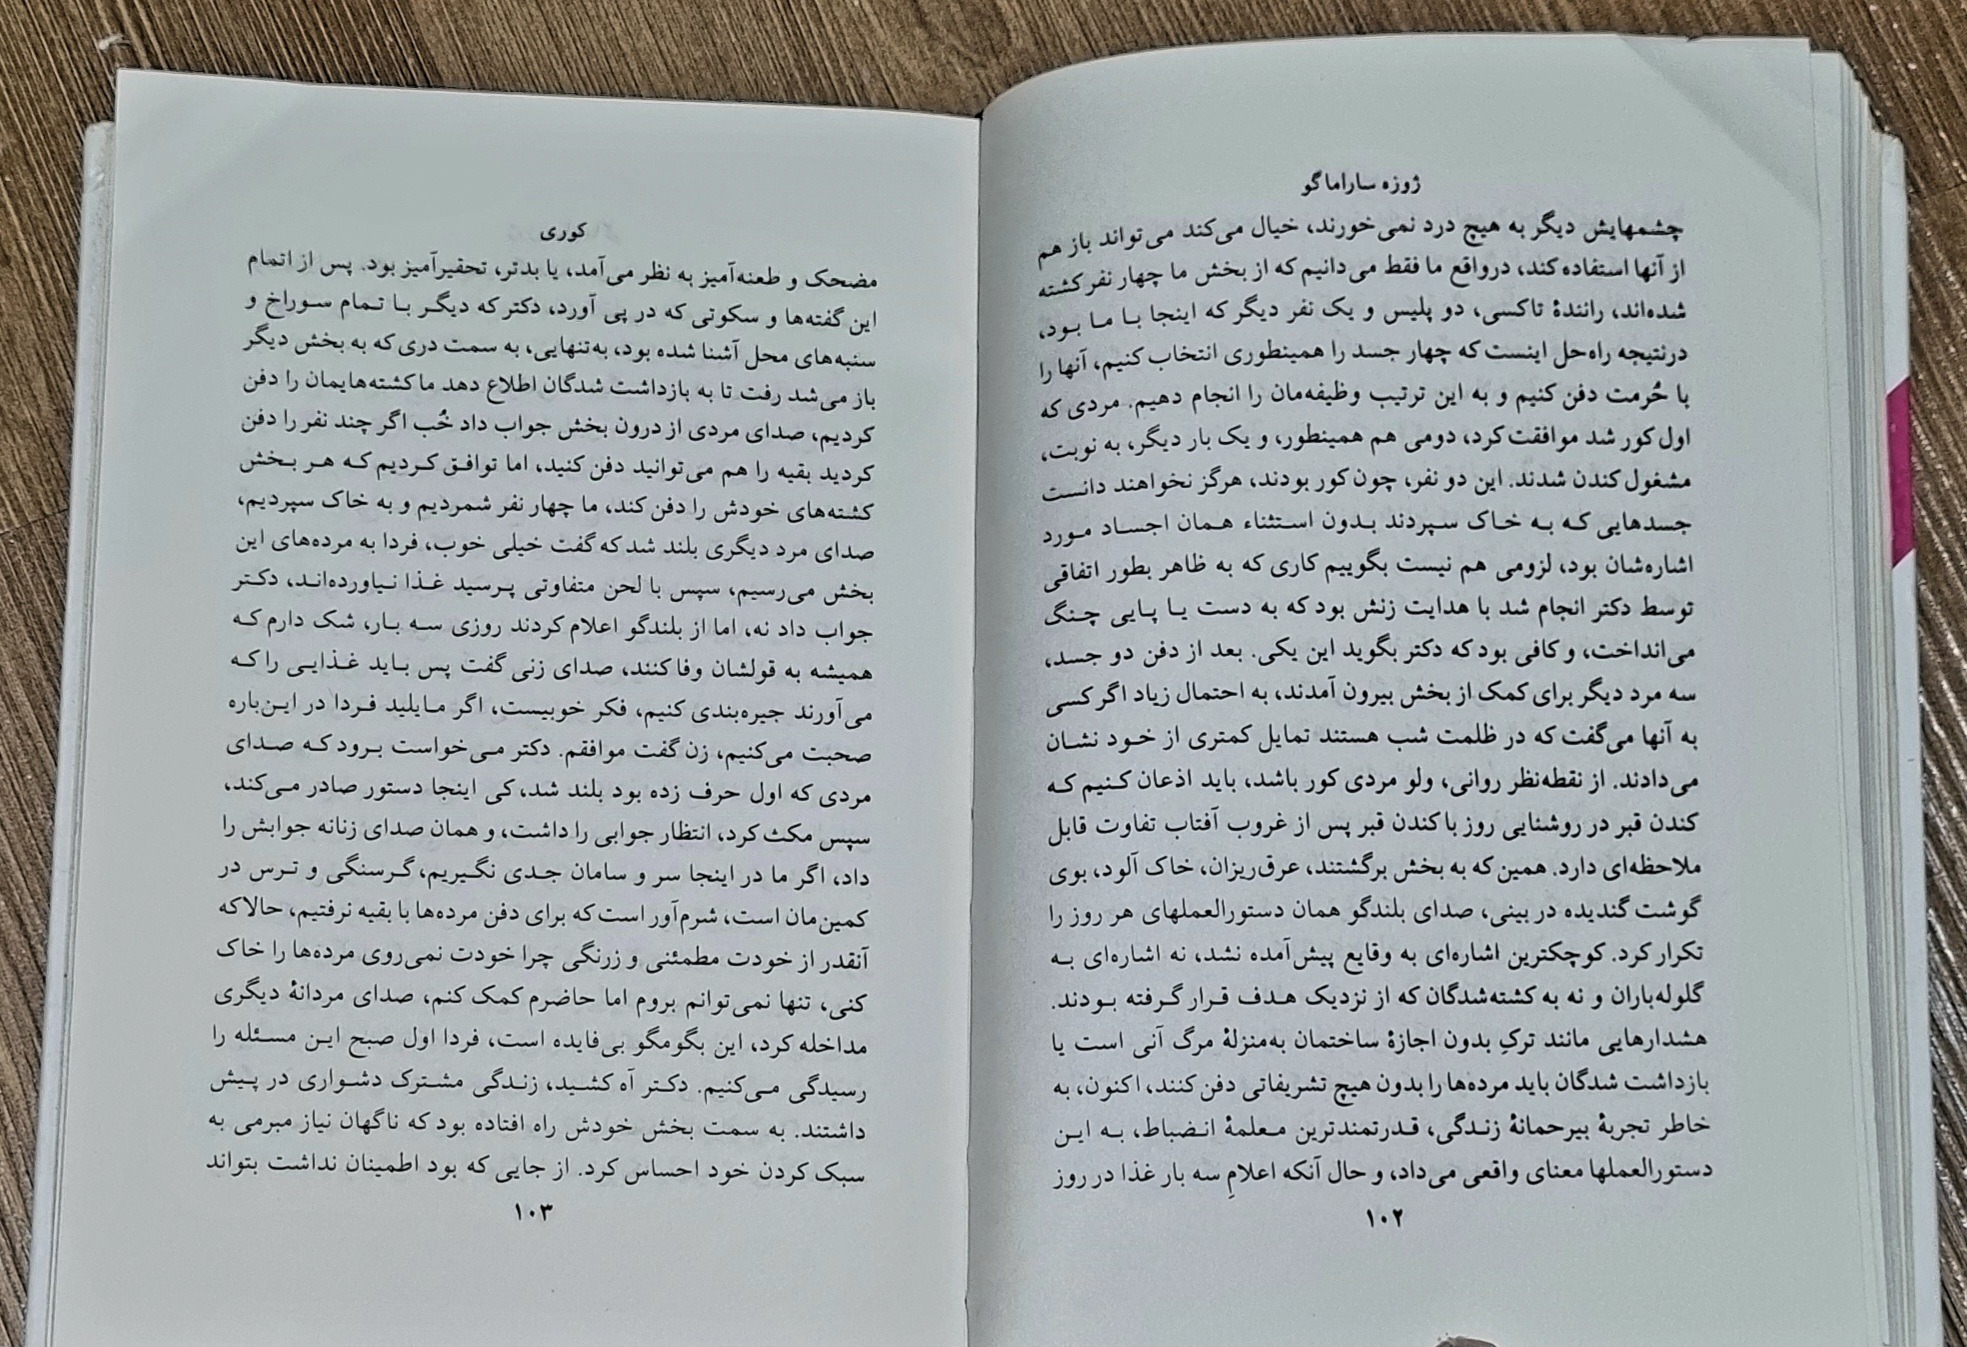 ژوزه ساراماگو
چشمهایش دیگر به هیچ درد نمی‌خورند، خیال می‌کند می‌تواند باز هم
از آنها استفاده کند، درواقع ما فقط می‌دانیم که از بخش ما چهار نفر کشته
شده‌اند، رانندهٔ تاکسی، دو پلیس و یک نفر دیگر که اینجا با ما بود،
درنتیجه راه‌حل اینست که چهار جسد را همینطوری انتخاب کنیم، آنها را
با حُرمت دفن کنیم و به این ترتیب وظیفه‌مان را انجام دهیم. مردی که
اول کور شد موافقت کرد، دومی هم همینطور، و یک بار دیگر، به نوبت،
مشغول کندن شدند. این دو نفر، چون کور بودند، هرگز نخواهند دانست
جسدهایی که به خاک سپردند بدون استثناء همان اجساد مورد
اشاره‌شان بود، لزومی هم نیست بگوییم کاری که به ظاهر بطور اتفاقی
توسط دکتر انجام شد با هدایت زنش بود که به دست یا پایی چنگ
می‌انداخت، و کافی بود که دکتر بگوید این یکی. بعد از دفن دو جسد،
سه مرد دیگر برای کمک از بخش بیرون آمدند، به احتمال زیاد اگر کسی
به آنها می‌گفت که در ظلمت شب هستند تمایل کمتری از خود نشان
می‌دادند. از نقطه‌نظر روانی، ولو مردی کور باشد، باید اذعان کنیم که
کندن قبر در روشنایی روز با کندن قبر پس از غروب آفتاب تفاوت قابل
ملاحظه‌ای دارد. همین که به بخش برگشتند، عرق‌ریزان، خاک آلود، بوی
گوشت گندیده در بینی، صدای بلندگو همان دستورالعملهای هر روز را
تکرار کرد. کوچکترین اشاره‌ای به وقایع پیش‌آمده نشد، نه اشاره‌ای به
گلوله‌باران و نه به کشته‌شدگان که از نزدیک هدف قرار گرفته بودند.
هشدارهایی مانند ترکِ بدون اجازهٔ ساختمان به‌منزلهٔ مرگ آنی است یا
بازداشت شدگان باید مرده‌ها را بدون هیچ تشریفاتی دفن کنند، اکنون، به
خاطر تجربهٔ بیرحمانهٔ زندگی، قدرتمندترین معلمهٔ انضباط، به این
دستورالعملها معنای واقعی می‌داد، و حال آنکه اعلامِ سه بار غذا در روز
۱۰۲
کوری
مضحک و طعنه‌آمیز به نظر می‌آمد، یا بدتر، تحقیرآمیز بود. پس از اتمام
این گفته‌ها و سکوتی که در پی آورد، دکتر که دیگر با تمام سوراخ و
سنبه‌های محل آشنا شده بود، به‌تنهایی، به سمت دری که به بخش دیگر
باز می‌شد رفت تا به بازداشت شدگان اطلاع دهد ما کشته‌هایمان را دفن
کردیم، صدای مردی از درون بخش جواب داد خُب اگر چند نفر را دفن
کردید بقیه را هم می‌توانید دفن کنید، اما توافق کردیم که هر بخش
کشته‌های خودش را دفن کند، ما چهار نفر شمردیم و به خاک سپردیم،
صدای مرد دیگری بلند شد که گفت خیلی خوب، فردا به مرده‌های این
بخش می‌رسیم، سپس با لحن متفاوتی پرسید غذا نیاورده‌اند، دکتر
جواب داد نه، اما از بلندگو اعلام کردند روزی سه بار، شک دارم که
همیشه به قولشان وفا کنند، صدای زنی گفت پس باید غذایی را که
می‌آورند جیره‌بندی کنیم، فکر خوبیست، اگر مایلید فردا در این‌باره
صحبت می‌کنیم، زن گفت موافقم. دکتر می‌خواست برود که صدای
مردی که اول حرف زده بود بلند شد، کی اینجا دستور صادر می‌کند،
سپس مکث کرد، انتظار جوابی را داشت، و همان صدای زنانه جوابش را
داد، اگر ما در اینجا سر و سامان جدی نگیریم، گرسنگی و ترس در
کمین‌مان است، شرم‌آور است که برای دفن مرده‌ها با بقیه نرفتیم، حالا که
آنقدر از خودت مطمئنی و زرنگی چرا خودت نمی‌روی مرده‌ها را خاک
کنی، تنها نمی‌توانم بروم اما حاضرم کمک کنم، صدای مردانهٔ دیگری
مداخله کرد، این بگومگو بی‌فایده است، فردا اول صبح این مسئله را
رسیدگی می‌کنیم. دکتر آه کشید، زندگی مشترک دشواری در پیش
داشتند. به سمت بخش خودش راه افتاده بود که ناگهان نیاز مبرمی به
سبک کردن خود احساس کرد. از جایی که بود اطمینان نداشت بتواند
۱۰۳